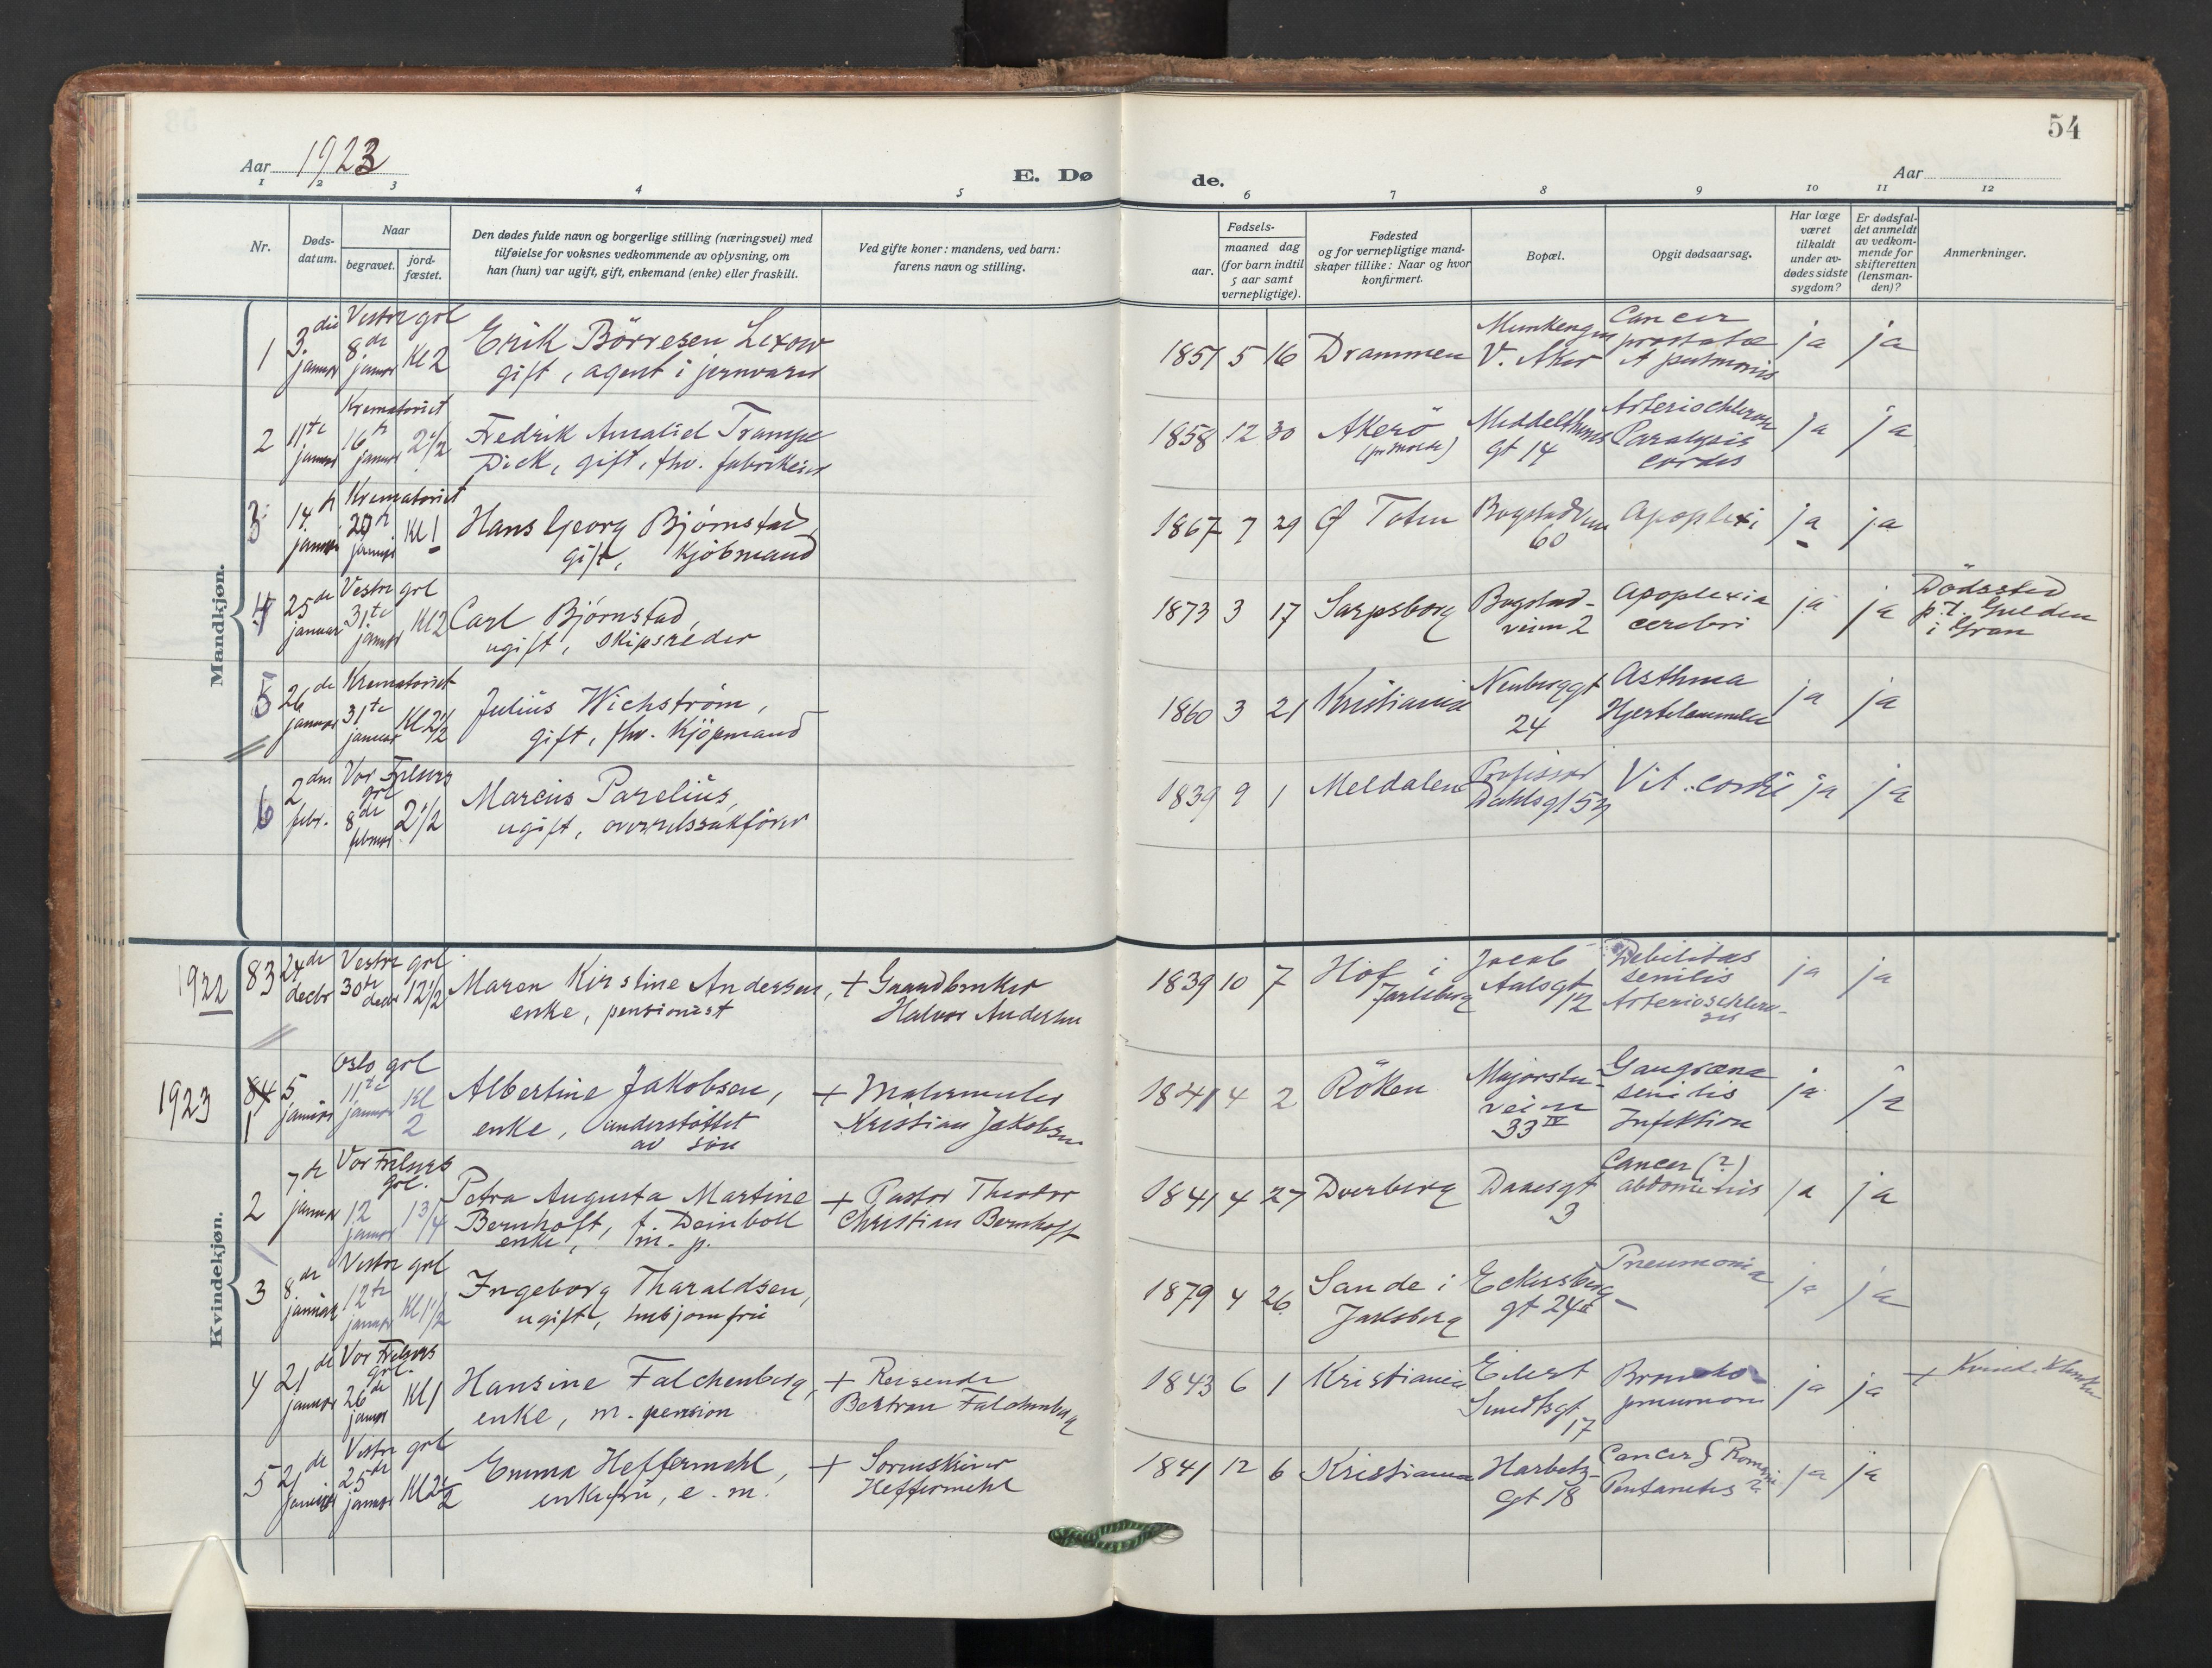 54
Aar 1923
E. Dø
de.
Aar
1 2 3 4 5 6 7 8 9 10 11 12
Nr.
Døds-
datum.
Naar
begravet.
jord-
fæstet.
Den dødes fulde navn og borgerlige stilling (næringsvei) med
tilføielse for voksnes vedkommende av oplysning, om
han (hun) var ugift, gift, enkemand (enke) eller fraskilt.
Ved gifte koner: mandens, ved barn:
farens navn og stilling.
Fødsels-
aar.
maaned dag
(for barn indtil
5 aar samt
vernepligtige).
Fødested
og for vernepligtige mand-
skaper tillike: Naar og hvor
konfirmert.
Bopæl.
Opgit dødsaarsag.
Har læge
været
tilkaldt
under av-
dødes sidste
sygdom?
Er dødsfal-
det anmeldt
av vedkom-
mende for
skifteretten
(lensman-
den)?
Anmerkninger.
Mandkjøn.
1 3die januar Vestre grl 8de januar Kl 2
Erik Börresen Lexow
gift, agent i jernvarer
1851 5 16 Drammen
V. Aker
Cancer
prostatae
ja ja
2 11te januar Krematoriet 16de januar 2 1/2
Fredrik Amaliel Trampe
Dick, gift, fhv. fabrikeier
1858 12 30 Akerö
Middelthuns
gt 14
Paralysis
cordis
ja ja
3 14de januar Krematoriet januar Kl 1
Hans Georg Bjørnstad,
gift, Kjöbmand
1867 7 29 Ø Toten
Bogstadveien
60
Apoplexi
ja ja
4 25de januar Vestre grl 31te januar Kl 2
Carl Bjørnstad,
ugift, skipsreder
1873 3 17 Sarpsborg
Bogstad-
veien 2
Apoplexia
cerebri
ja ja
Dödssted
p.t.
i Gran
5 26de januar Krematoriet 31te januar Kl 2 1/2
Julius Wichstrøm,
gift, fhv. Kjöpmand
1860 3 21 Kristiania
Neuberggt
24
Asthma
Hjertelammelse
ja ja
6 2den febr. Vor Frelsers grl 8de februar 2 1/2
Marcus Parelius,
ugift, overretssakförer
1839 9 1 Meldalen
Professor
Dahlsgt 53
Vit. cordis
ja ja
Kvindekjøn.
1922 83 24de decbr Vestre grl 30te decbr 12 1/2
Maren Kirstine Andersen,
enke, pensionist
+ Gaardbruker
Halvor Andersen
1839 10 7 Hof i
Jarlsberg
Jacob
Aalsgt
12
Debilitas
senilis
ja ja
1923 84 1 5 januar Oslo grl 11te januar Kl 2
Albertine Jakobsen,
enke, understöttet
av sön
+ Malermester
Kristian Jakobsen
1841 4 2 Röken
Majorstu-
veien
33 IV
Gangræna
senilis
Infektion
ja ja
2 7de januar Vor Frelsers grl. 12 januar 1 3/4
Petra Augusta Martine
Bernhoft, f. Deinboll
enke, m. p.
+ Pastor Theodor
Christian Bernhoft
1841 4 27 Dverberg
Daasgt
3
Cancer (?)
abdominis
ja ja
3 8de januar Vestre grl 12te januar Kl 1 1/2
Ingeborg Tharaldsen,
ugift, husjomfru
1879 4 26 Sande i
Jarlsberg
Eckersberg-
gt 24a
Pneumonia
ja ja
4 21de januar Vor Frelsers grl. 26de januar Kl 1
Hansine Falchenberg,
enke, m. pension
+ Reisende
Bertran Falchenberg
1843 6 1 Kristiania
Eilert
Sundtsgt
17
Broncho-
pneumoni
ja ja
5 21de januar Vestre grl 25de januar Kl 2 1/2
Emma Heffermehl,
enkefru, e. m.
+ Sorenskriver
Heffermehl
1841 12 6 Kristiania
Harbitz-
gt 18
Cancer
ja ja